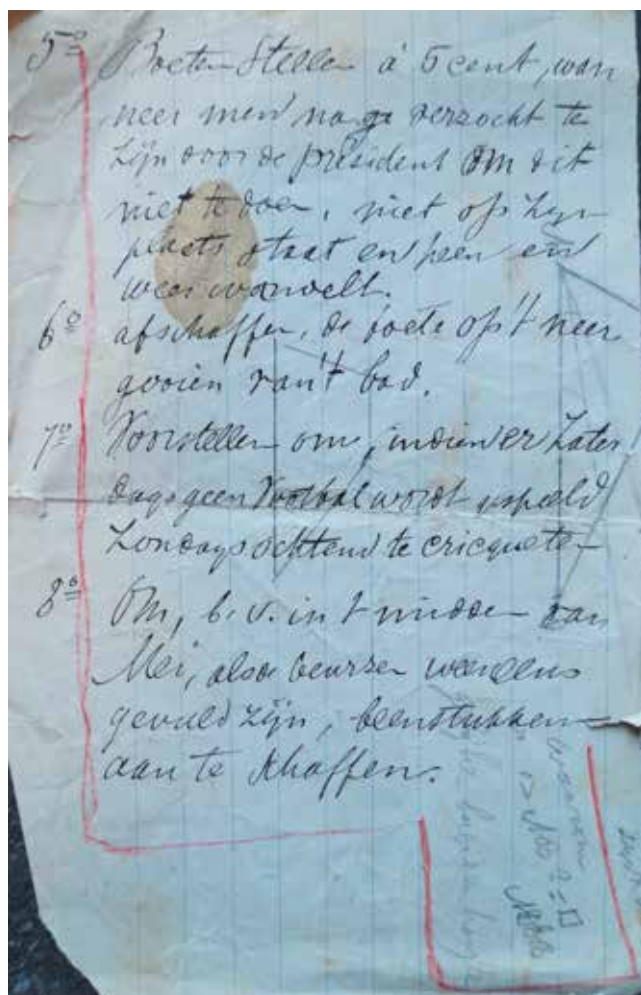 5º Boeten Stellen à 5 cent, wan
neer men na ge verzocht te
zijn door de président om dit
niet te doen, niet op zijn
plaats staat en heen en
weer wandelt.
6º afschaffen, de boete op 't neer
gooien van 't bad.
7º Voorstellen om, indien er Zater
dags geen Voetbal wordt gespeeld
Zondagsochtend te cricqueten
8º Om, b.v. in 't midden van
Mei, als de beurzen weer eens
gevuld zijn, beenstukken
aan te schaffen.
waarom